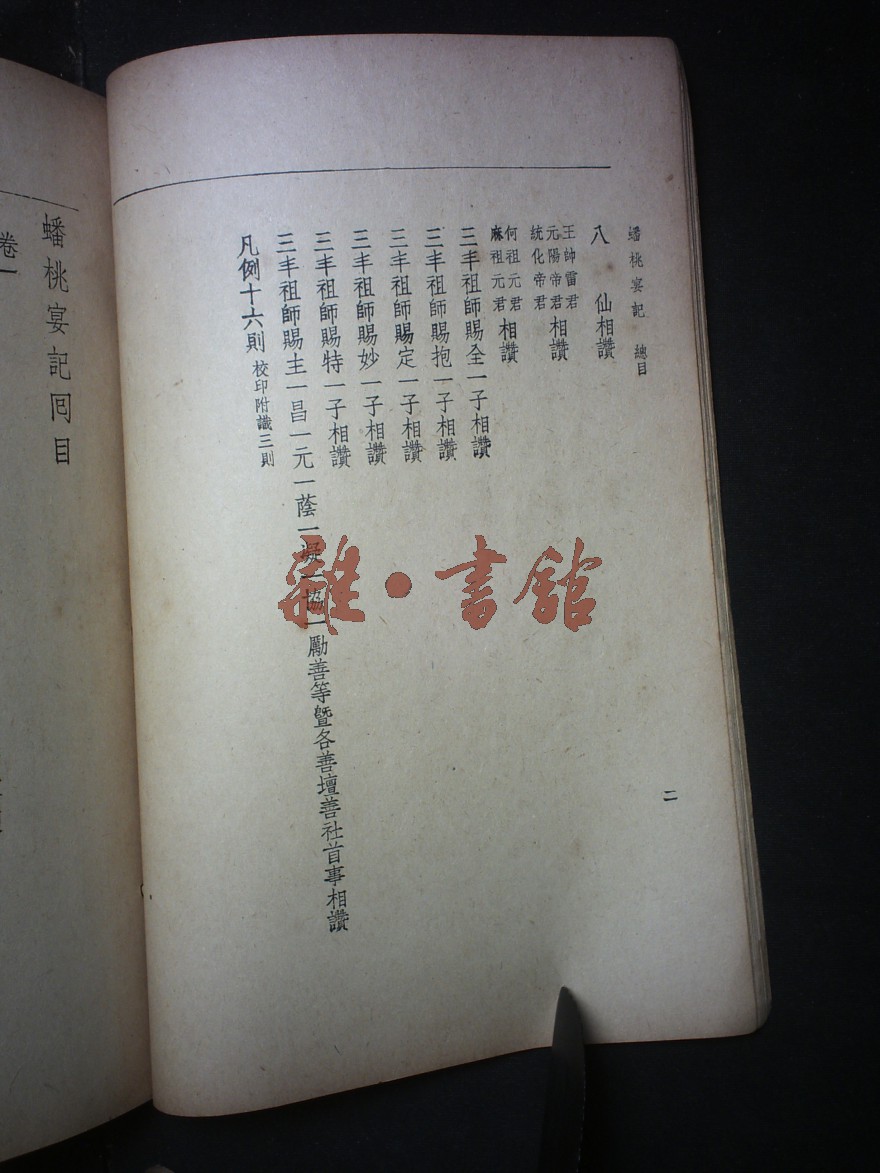 蟠桃宴記 總目
二
八仙相讚
王帥雷君
元陽帝君相讚
統化帝君
何祖元君
麻祖元君相讚
三丰祖師賜全一子相讚
三丰祖師賜抱一子相讚
三丰祖師賜定一子相讚
三丰祖師賜妙一子相讚
三丰祖師賜特一子相讚
三丰祖師賜主一昌一元一蔭一凝一協一勵善等暨各善壇善社首事相讚
凡例十六則 校印附識三則
蟠桃宴記囘目
卷一
雜·書館